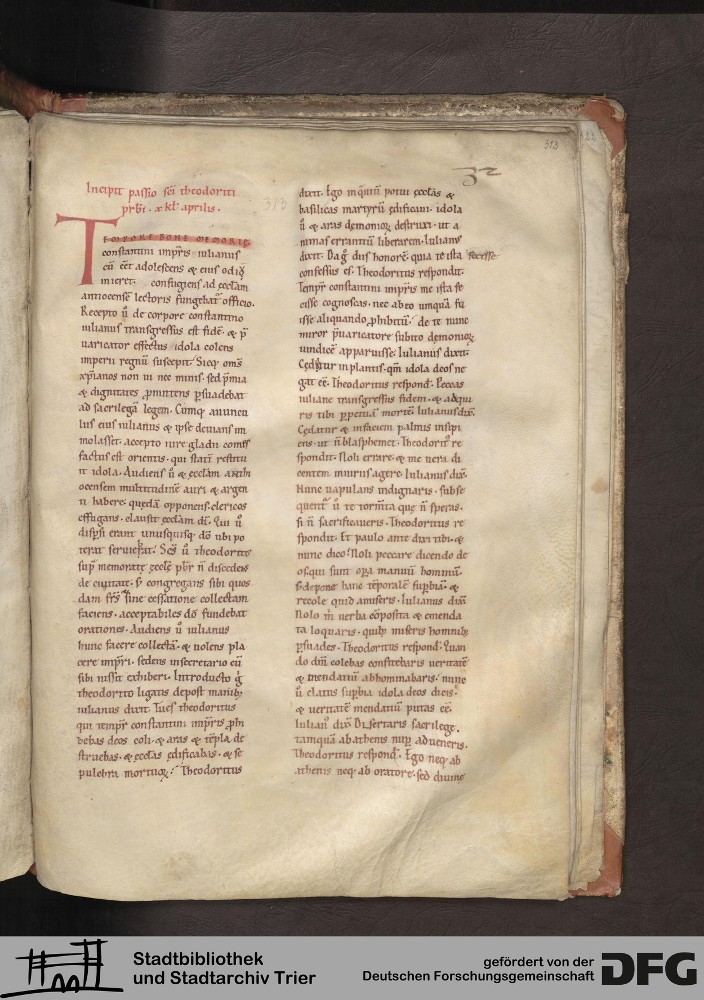 313
32
Incipit passio sc̄i theodoriti
pr̄bi · x kl̄ aprilis ·
313
TEMPORE BONE MEMORIE
constantini imp̄ris iulianus
cū eēt adolescens & eius odiū
meret · confugiens ad ęcclām
antiocensē lectoris fungebat᷑ officio ·
Recepto u̅ de corpore constantino
iulianus transgressus est fidē · & p̄
uaricator effectus idola colens
imperii regnū suscepit · Sicq; om̄s
xp̄ianos non in nece minis · sed p̄mia
& dignitates ꝓmittens ꝑsuadebat
ad sacrilegā legem · Cumq; auuncu
lus eius iulianus & ipse deuians in
molasset · accepto iure gladii comes
factus est orientis · qui statī restitu
it idola · Audiens u̅ & ęcclam anthi
ocensem multitudinē auri & argen
ti habere · quedā opponens · clericos
effugans · clausit ęcclam dī · Qui u̅
disꝑsi erant unusquisq; dō ubi po
terat seruiebat · Sc̄s u̅ theodoritus
sup̄ memoratę ęcclę pb̄r n̄ discedens
de ciuitate · & congregans sibi quos
dam frēs sine cessatione collectam
faciens · acceptabiles dō fundebat
orationes · Audiens u̅ iulianus
hunc facere collectā · & uolens pla
cere imp̄ri · sedens in secretario eū
sibi iussit exhiberi · Introducto g̊
theodorito ligatis depost manib;
iulianus dixit · Tu es theodoritus
qui temp̄r constantini imp̄ris ꝓhi
bebas deos coli · & aras & tēpla de
struebas · & ęcclas ędificabas · & se
pulchra mortuoꝝ · Theodoritus
dixit · Ego in q̄ntū potui ęcclas &
basilicas martyrū ędificaui · idola
u̅ & aras demonioꝝ destruxi · ut a
nimas errantiū liberarem · Iulianus
dixit · Da g̊ diis honorē · quia te ista fecisse
confessus es · Theodoritus respondit ·
Temp̄r constantini imp̄ris me ista fe
cisse cognoscas · nec ab eo umquā fu
isse aliquando ꝓhibitū · de te nunc
miror p̄uaricatore subito demonioꝝ
uindicē apparuisse · Iulianus dixit ·
Cędatur in plantis · qm̄ idola deos ne
gat eē · Theodoritus respond̄ · Peccas
iuliane transgressus fidem · & adqui
ris tibi ꝑpetuā mortē · Iulianus dix̄ ·
Cedatur & in faciem palmis insipi
ens · ut n̄ blasphemet · Theodorit᷒ re
spondit · Noli errare · & me uera di
centem iniuriis agere · Iulianus dix̄ ·
Nunc uapulans indignaris · subse
quent᷑ u̅ te torm̄ta que n̄ speras ·
si n̄ sacrificaueris · Theodoritus re
spondit · Et paulo ante dixi tibi · &
nunc dico · Noli peccare dicendo de
os qui sunt oꝑa manuū hominū ·
S; depone hanc tēporalē suꝑbiā · &
recole quid amiseris · Iulianus dix̄
Nolo m̄ uerba cōposita & emenda
ta loquaris · quib; miseris hominib;
ꝑsuades · Theodoritus respond̄ · Quan
do dm̄ colebas confitebaris ueritatē
& mendatiū abhominabaris · nunc
u̅ elatus suꝑbia idola deos dicis ·
& ueritatē mendatiū putas eē ·
Iulian᷒ dix̄ · Disertaris sacrilege ·
tamquā ab athenis nuꝑ adueneris ·
Theodoritus respond̄ · Ego neq; ab
athenis neq; ab oratore · sed diuine
Stadtbibliothek
und Stadtarchiv Trier
gefördert von der
Deutschen Forschungsgemeinschaft
DFG